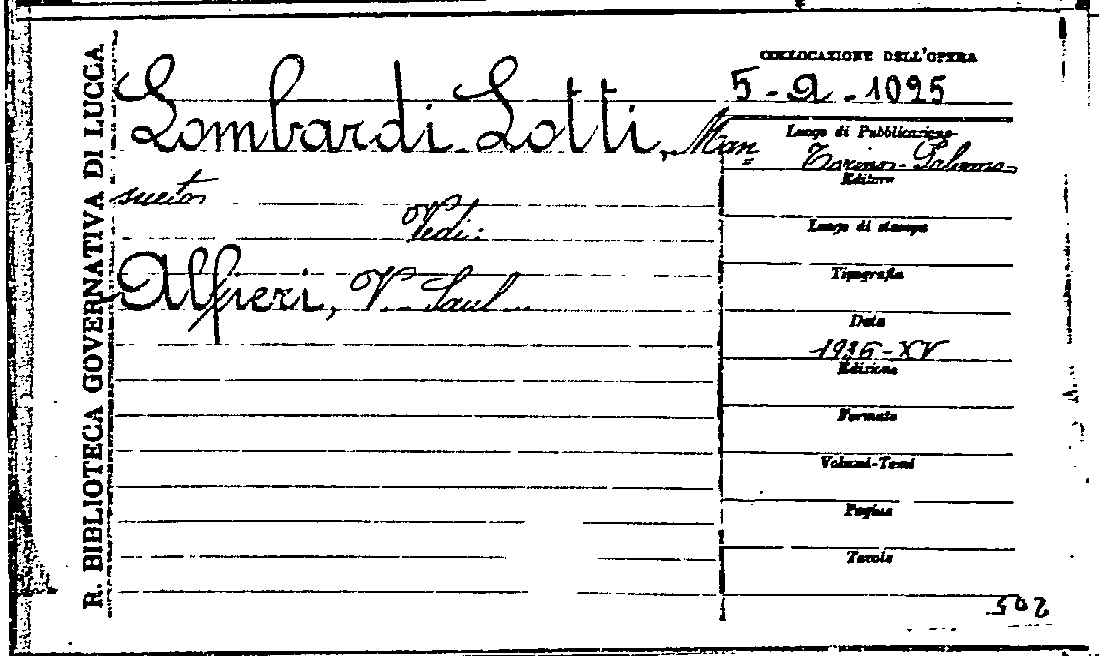 R. BIBLIOTECA GOVERNATIVA DI LUCCA
COLLOCAZIONE DELL'OPERA
5-a-1025
Lombardi Lotti, Man=
sueto
Vedi:
Alfieri, V. Saul
Luogo di Pubblicazione
Torino-Palermo
Editore
Luogo di stampa
Tipografia
Data
1936-XV
Edizione
Formato
Volumi-Tomi
Pagine
Tavole